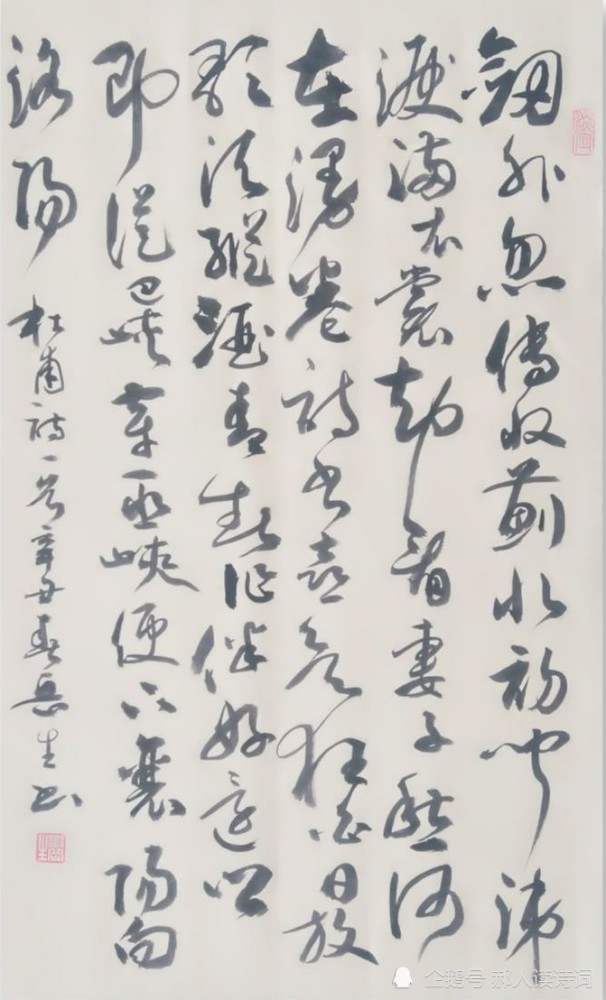 劍外忽傳收薊北初聞涕
淚滿衣裳却看妻子愁何
在漫卷詩書喜欲狂白日放
歌須縱酒青春作伴好還鄉
即從巴峽穿巫峽便下襄陽向
洛陽
杜甫詩一首辛丑春岳生書
企鹅号 郝人读诗词